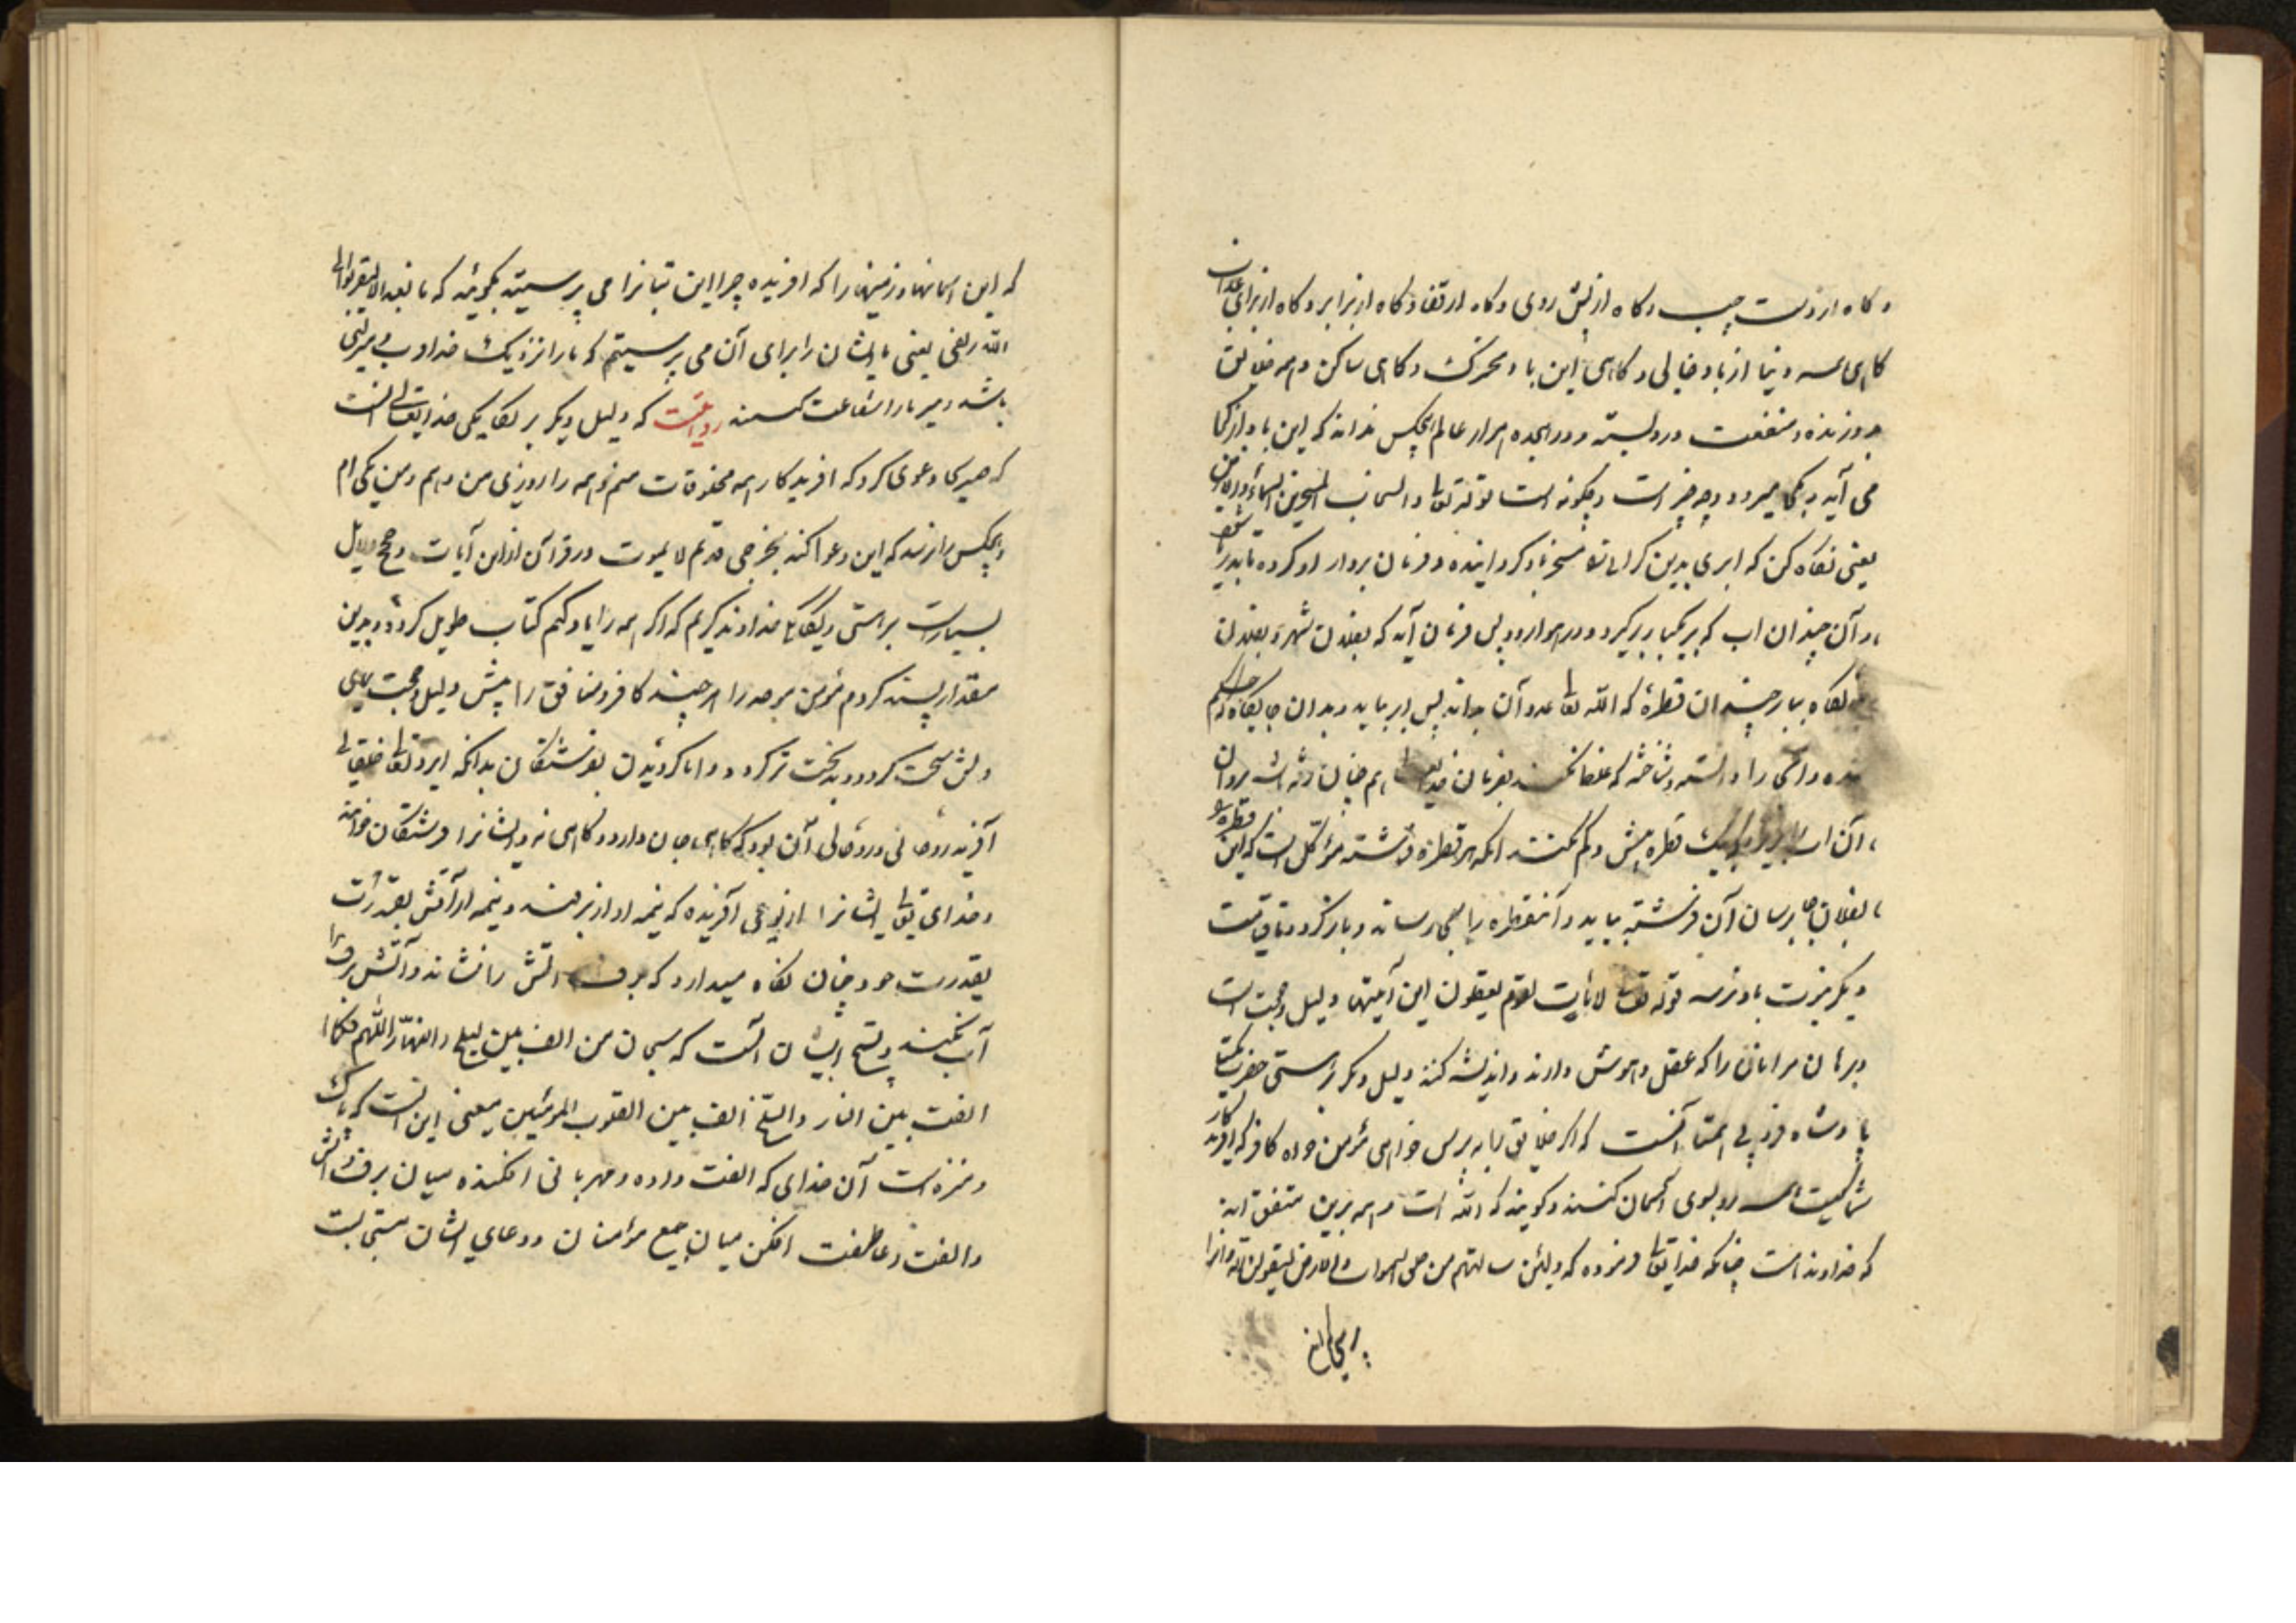 و گاه از دست چپ و گاه از پیش روی و گاه از قفا و گاه از برابر و گاه از برای عذاب
گاهی همه دنیا از باد خالی و گاهی این باد متحرک و گاهی ساکن و همه خلایق
در وزنده و منفعت در و بسته و در عالم هیچکس نداند که این باد از کجا
می آید و بکجا میرود و چه چیز است و چگونه است قوله تعالی والسحاب المسخر بین السماء والارض
یعنی نگاه کن که ابری بدین کرانی تو مسخر باد کردانیده و فرمان بردار او کرده تا بدریا
و آن چندان اب که بر یکبار بر کیرد و در هوا رود پس فرمان آید که بفلان شهر و بفلان
نگاه ببارد چندان قطرهٔ که الله تعالی عدد آن داند پس ابر بیاید و بدان جایگاه
شده و را دانسته و شناخته که غلط نکند بفرمان خدایتعالی هم چنان
آن اب یک قطره بیش و کم نکند انکه هر قطره فرشته مؤکل است که این قطره
بفلان جا برسان آن فرشته بیاید و آنقطره را بجای رساند و باز کردد تا قیامت
دیکر نوبت باو نرسد قوله تعالی لایات لقوم یعقلون این آیتها دلیل و حجت است
و برهان مر انان را که عقل و هوش دارند و اندیشه کنند دلیل دیکر بر هستی حضرت یکتا
پادشاه فرد بی همتا آنست که اکر خلایق را به پرسی خواهی مؤمن خواه کافر که افریدکار
شما کیست همه رو بسوی آسمان کنند و کویند که الله است و همه برین متفق اند
که خداوند است چنانکه خدایتعالی فرموده که ولئن سالتهم من خلق السموات والارض لیقولن الله
که این اسمانها و زمینها را که افریده چرا این بتانرا می پرسیتید بکویند که ما نعبدهم الا لیقربونا الی
الله زلفی یعنی ما ایشان را برای آن می پرسیتیم که ما را نزدیک خداوند قربتی
باشد و مر ما را شفاعت کنند روایتست که دلیل دیکر بر یکانکی خدایتعالی انست
که هر یکی دعوی کرد که افریدکار همه مخلوقات منم و همه را روزی من دهم و من یکی ام
و هیچکس را نرسد که این دعوا کند بجز حی قدیم لا یموت در قرآن ازاین آیات و حجج و دلایل
بسیار است بر هستی و یکانکی خداوند کریم که اکر همه را یاد کنم کتاب طویل کردد و بدین
مقدار بسند کردم مؤمن موحد را هر چند کافر و منافق را پیش دلیل و حجت
دلش سخت کردد و بدبخت تر کردد و اما کرویدن بفرشتکان بدانکه ایزد تعالی خلقی
آفرید روحانی و روحانی آن بود که کاهی جان دارد و کاهی نه و ایشانرا فرشتکان خوانند
و خدای تعالی ایشانرا از نوعی آفریده که نیمه او از برفند و نیمه از آتش بقدرت
بقدرت خود چنان نکاه میدارد که برف اتش را نشاند و آتش برف را
آب نکند و تسبیح ایشان آنست که سبحان من الف بین لیل والنهار اللهم فکما
الفت بین النار والثلج الف بین القلوب المومنین معنی این انست که پاک
و منزه است آن خدای که الفت داده و مهربانی افکنده میان برف و آتش
والفت و عاطفت افکن میان جمع مؤمنان و دعای ایشان مستجابست